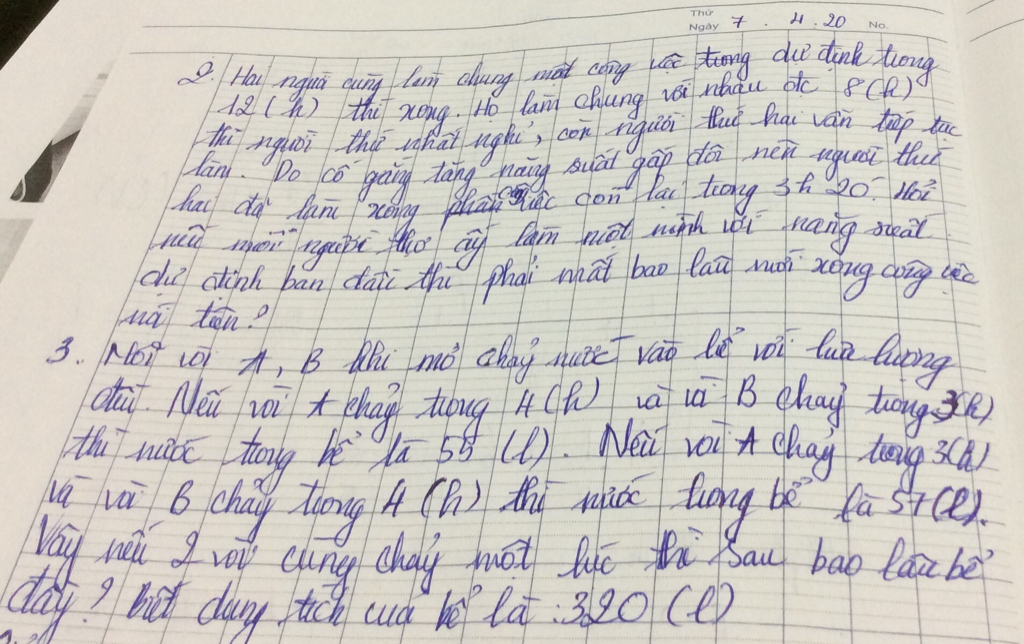 Thứ
Ngày 7 . 4 . 20 No.
2. Hai người cùng làm chung một công việc trong dự định trong
12 (h) thì xong. Họ làm chung với nhau đc 8 (h)
thì người thứ nhất nghỉ, còn người thứ hai vẫn tiếp tục
làm. Do cố gắng tăng năng suất gấp đôi nên người thứ
hai đã làm xong phần việc còn lại trong 3h 20'. Hỏi
nếu mỗi người thợ ấy làm một mình với năng suất
dự định ban đầu thì phải mất bao lâu mới xong công việc
nói trên?
3. Mỗi vòi A, B khi mở chảy nước vào bể với lưu lượng
đều. Nếu vòi A chảy trong 4 (h) và vòi B chảy trong 3(h)
thì nước trong bể là 55 (l). Nếu vòi A chảy trong 3(h)
và vòi B chảy trong 4 (h) thì nước trong bể là 57 (l).
Vậy nếu 2 vòi cùng chảy một lúc thì sau bao lâu bể
đầy? biết dung tích của bể là : 320 (l)